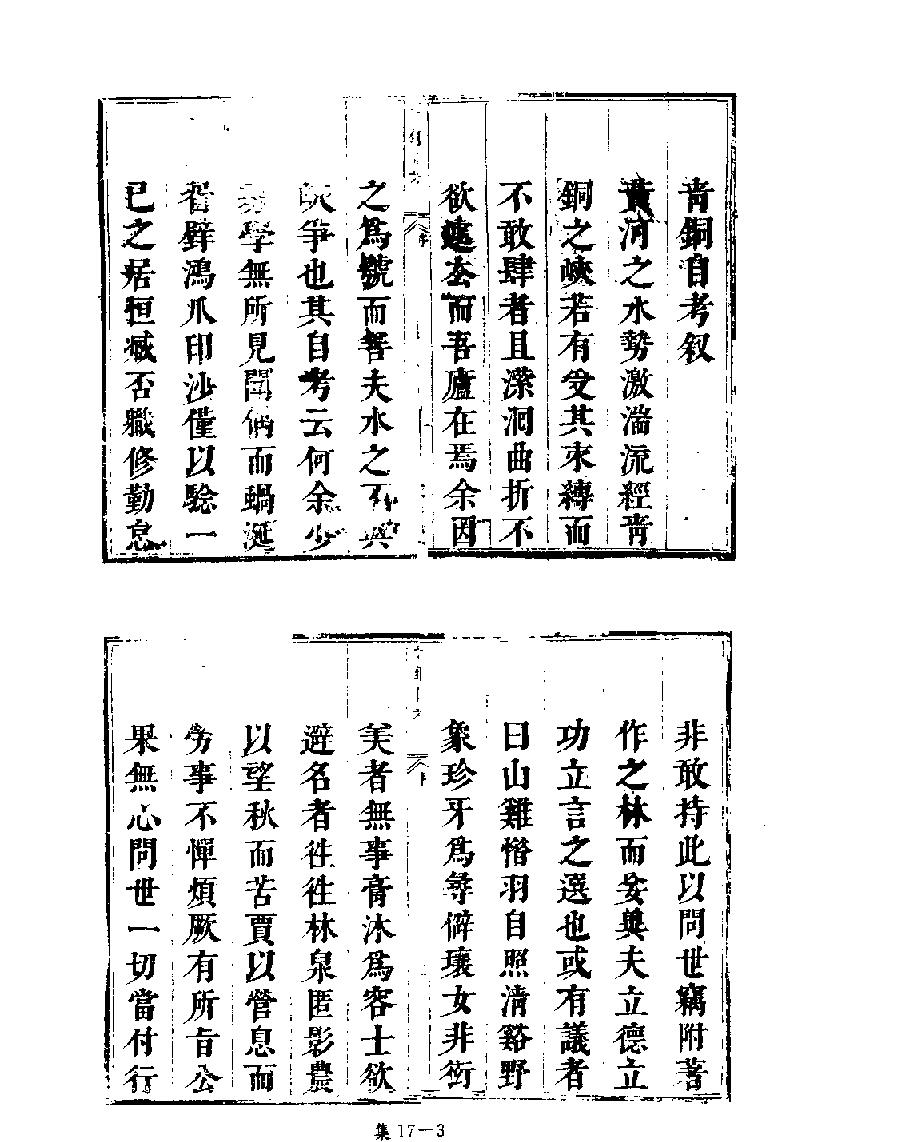 青銅自考叙
黃河之水勢激湍流經青
銅之峽若有受其束縛而
不敢肆者且潆洄曲折不
欲遽去而吾廬在焉余因
之爲號而誓夫水之不與
峽爭也其自考云何余少
學無所見聞偶而蝸涎
着壁鴻爪印沙僅以驗一
已之居恒臧否職修勤怠
非敢持此以問世竊附著
作之林而妄與夫立德立
功立言之選也或有議者
曰山雞惜羽自照清谿野
象珍牙爲尋僻壤女非衒
美者無事膏沐爲容士欲
避名者徃徃林泉匿影農
以望秋而苦賈以營息而
勞事不憚煩厥有所旨公
果無心問世一切當付行
集17—3